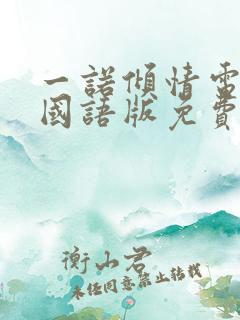 一諾傾情電
國語版免費
衡山君
未经同意禁止转载